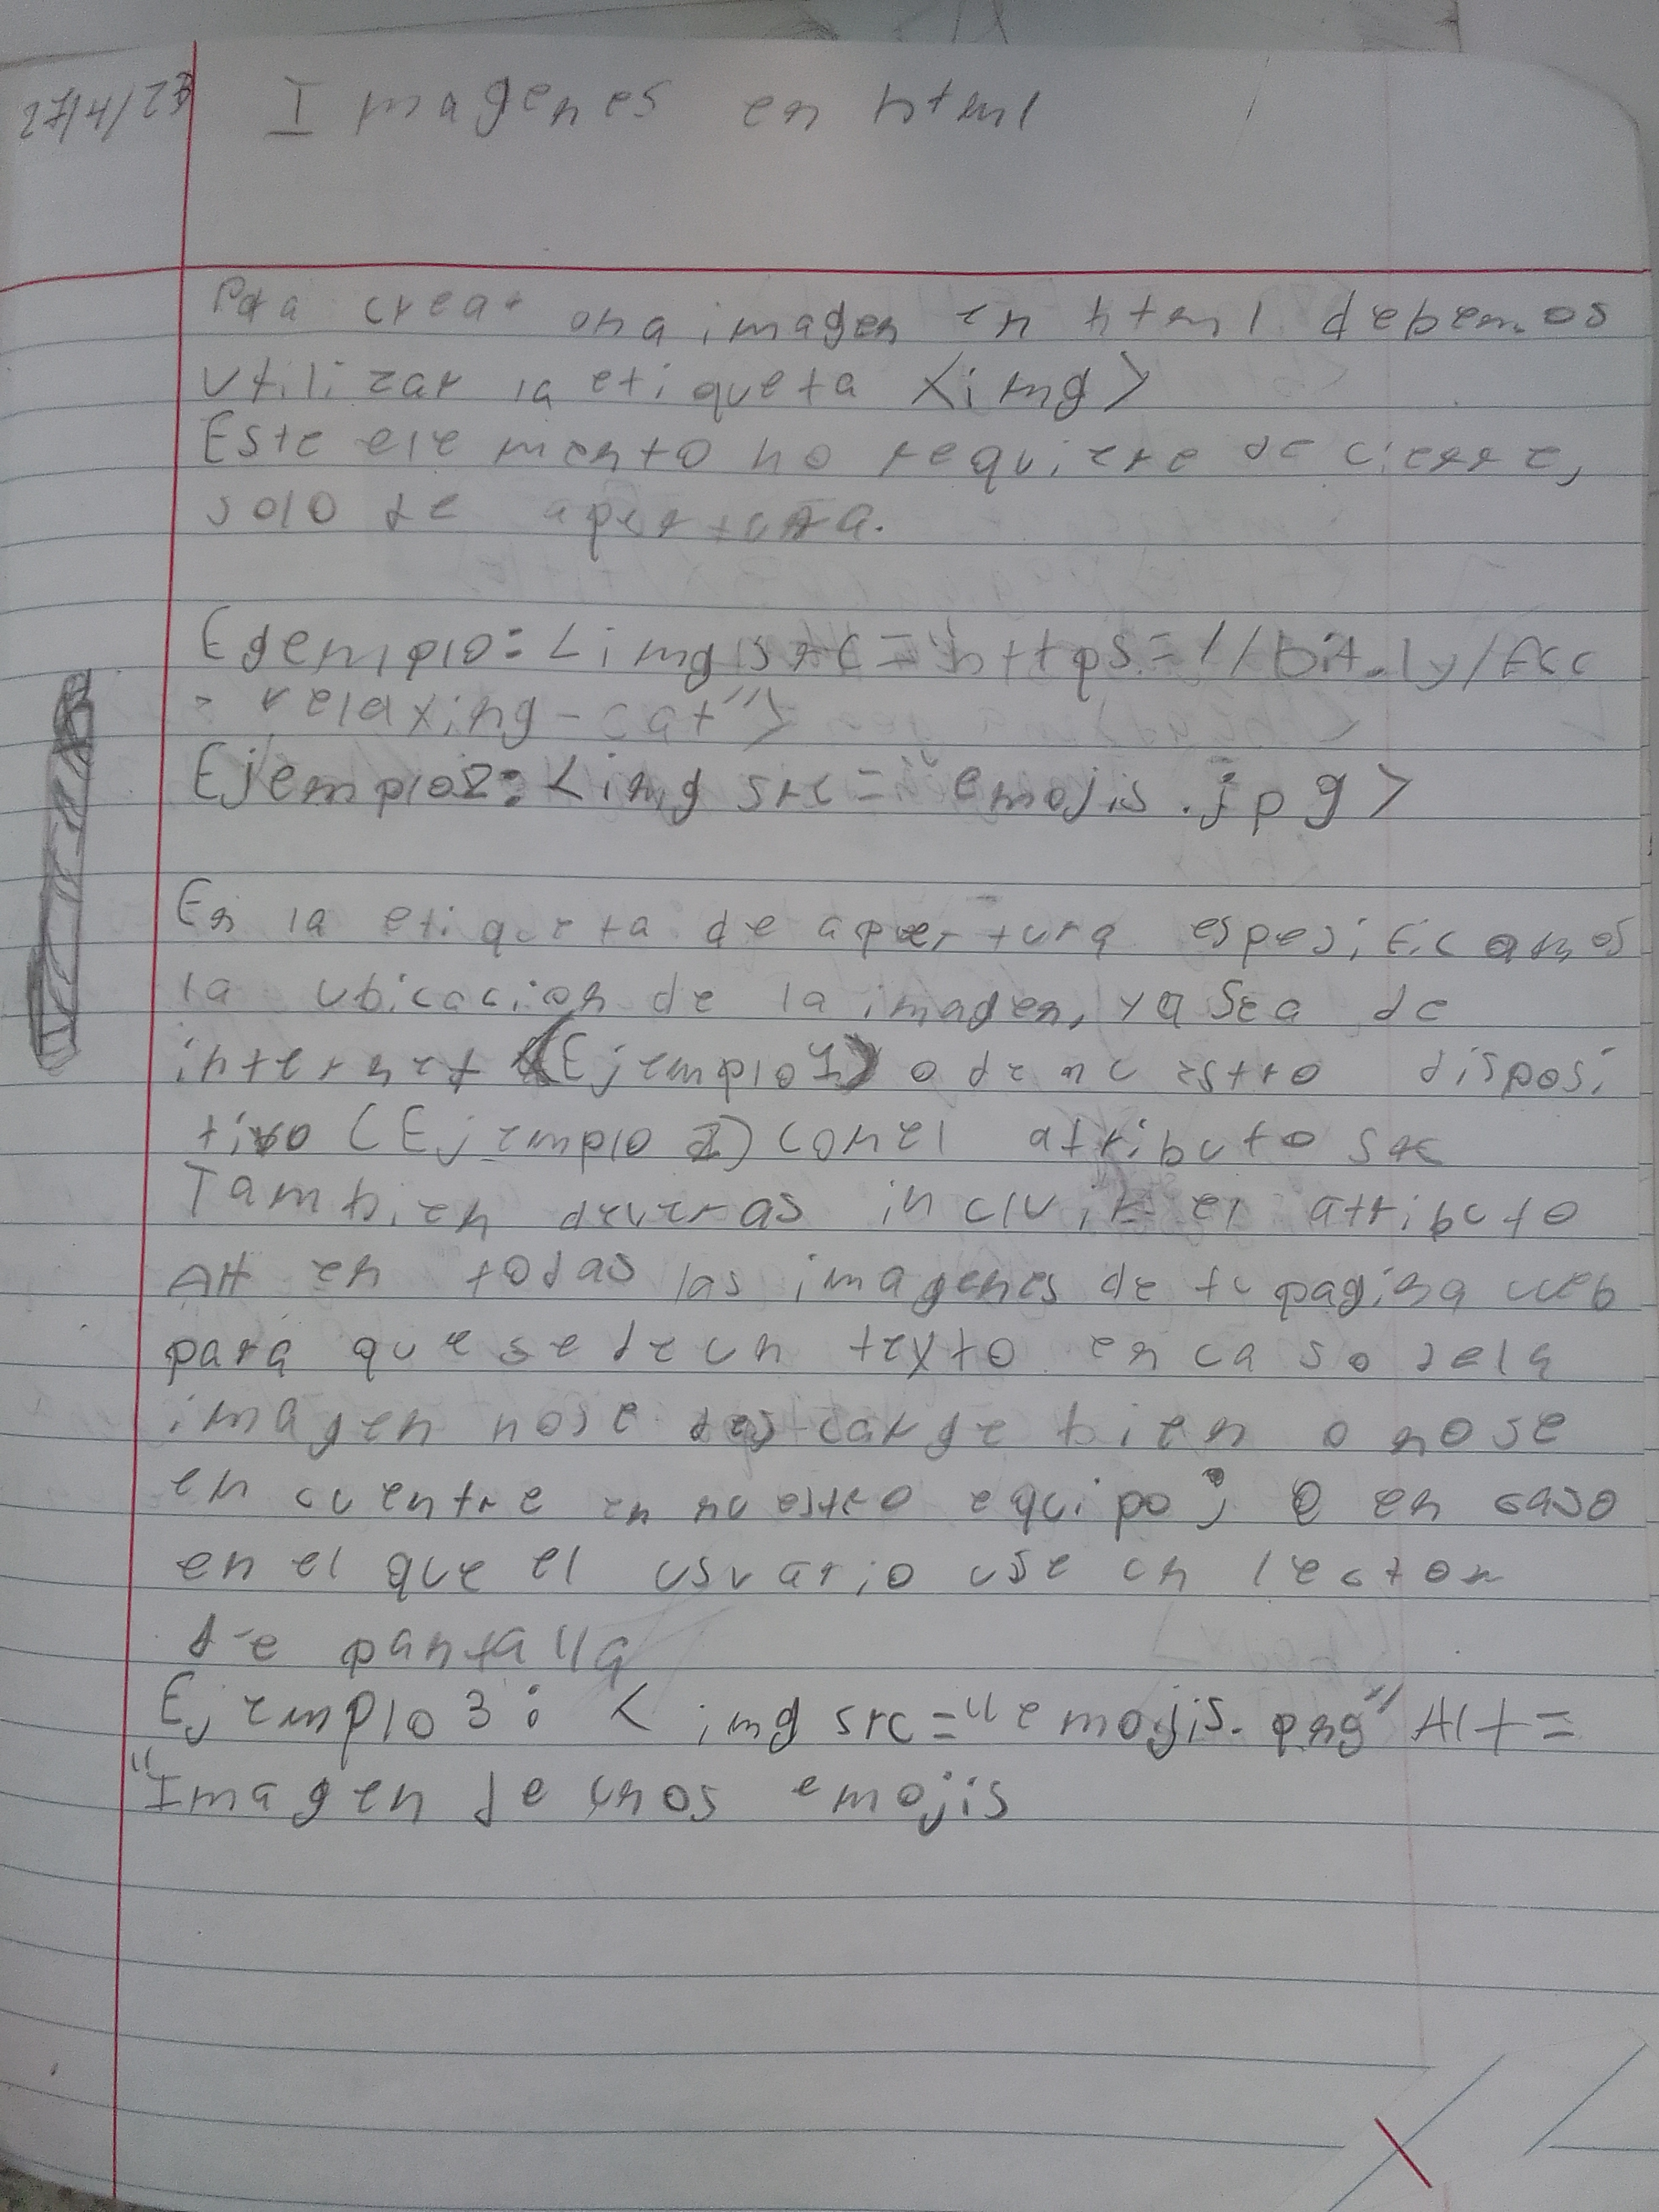 27/4/23 Imagenes en html
Para crear una imagen en html debemos
utilizar la etiqueta <img>
Este elemento no requiere de cierre,
solo de apertura.
Egemplo: <img src="https=//bit.ly/fcc
- relaxing-cat">
Ejemplo2: <img src="emojis.jpg>
En la etiqueta de apertura espesificamos
la ubicacion de la imagen, ya sea de
internet (Ejemplo1) o de nuestro disposi
tivo (Ejemplo 2) con el atributo src
Tambien deveras incluir el atributo
Alt en todas las imagenes de tu pagina web
para que se de un texto en caso de la
imagen no se descarge bien o no se
encuentre en nuestro equipo; O en caso
en el que el usuario use un lector
de pantalla
Ejemplo3: <img src="emojis.png" Alt=
"Imagen de unos emojis